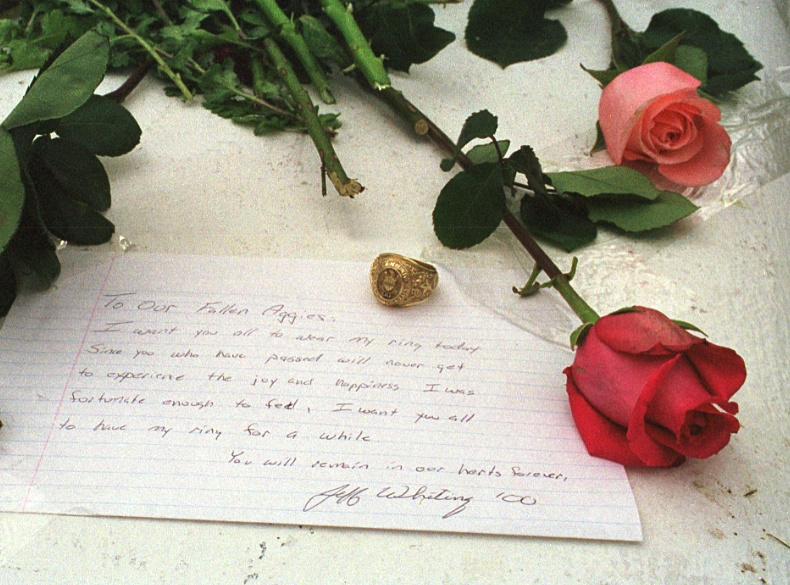 To Our Fallen Aggies,
I want you all to wear my ring today
Since you who have passed will never get
to experience the joy and happiness I was
fortunate enough to feel, I want you all
to have my ring for a while
You will remain in our harts forever,
Jeff Whiting '00